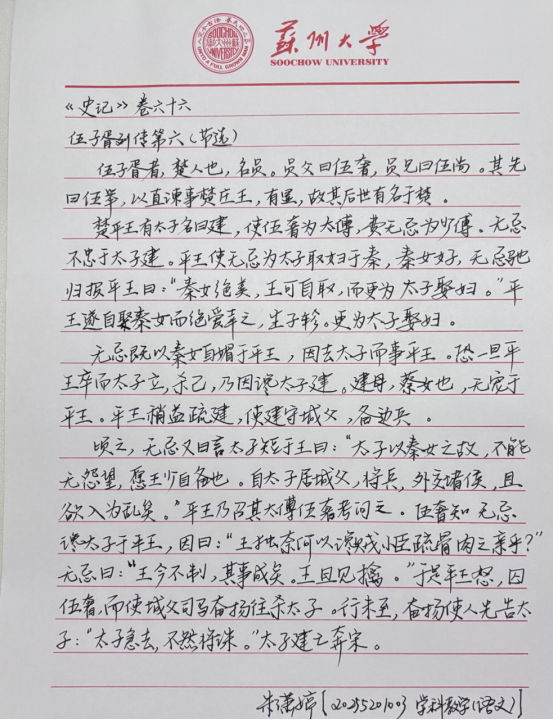 蘇州大學
SOOCHOW UNIVERSITY
《史记》卷六十六
伍子胥列传第六(节选)
伍子胥者，楚人也，名员。员父曰伍奢，员兄曰伍尚。其先
曰伍举，以直谏事楚庄王，有显，故其后世有名于楚。
楚平王有太子名曰建，使伍奢为太傅，费无忌为少傅。无忌
不忠于太子建。平王使无忌为太子取妇于秦，秦女好，无忌驰
归报平王曰：“秦女绝美，王可自取，而更为太子娶妇。”平
王遂自娶秦女而绝爱幸之，生子轸。更为太子娶妇。
无忌既以秦女自媚于平王，因去太子而事平王。恐一旦平
王卒而太子立，杀己，乃因谗太子建。建母，蔡女也，无宠于
平王。平王稍益疏建，使建守城父，备边兵。
顷之，无忌又日言太子短于王曰：“太子以秦女之故，不能
无怨望，愿王少自备也。自太子居城父，将兵，外交诸侯，且
欲入为乱矣。”平王乃召其太傅伍奢考问之。伍奢知无忌
谗太子于平王，因曰：“王独奈何以谗贼小臣疏骨肉之亲乎？”
无忌曰：“王今不制，其事成矣。王且见擒。”于是平王怒，囚
伍奢，而使城父司马奋扬往杀太子。行未至，奋扬使人先告太
子：“太子急去，不然将诛。”太子建亡奔宋。
朱潇婷[20255201003 学科教学(语文)]